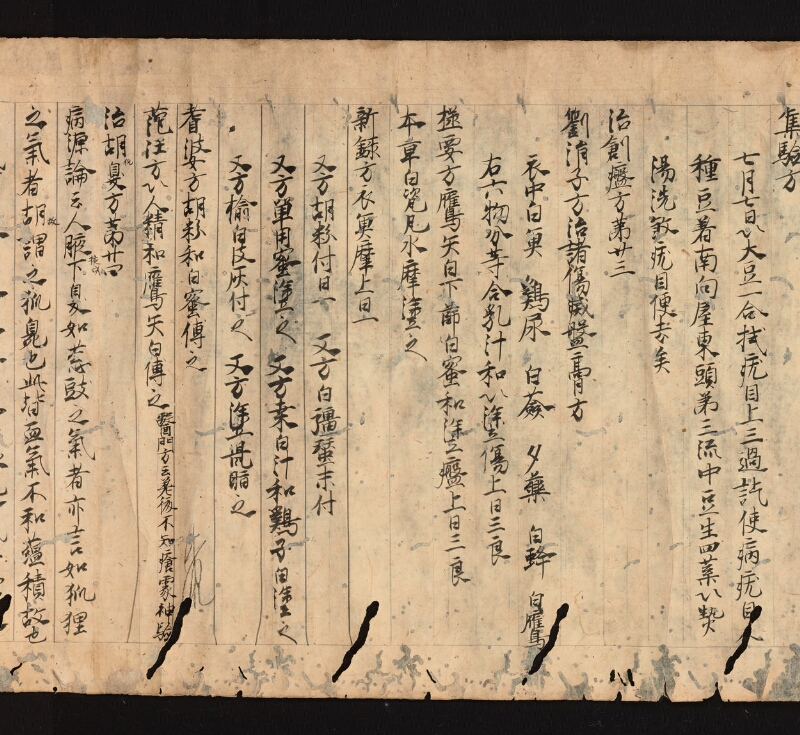 集驗方
七月七日以大豆一合拭疣目上三過訖使病疣目人
種豆著南向屋東頭第三流中豆生四葉以熱
湯洗致疣目便去矣
治創瘢方第廿三
劉涓子方治諸傷滅瘢膏方
衣中白魚 鷄屎 白蘞 夕藥 白蜂 白鷹
右六物分等合乳汁和以塗傷上日三良
極要方鷹矢白下篩白蜜和塗瘢上日三良
本草白瓷瓦水摩塗之
新錄方衣魚摩上日一
又方胡粉付日一 又方白殭蚕末付
又方單用蜜塗之 又方桑白汁和鷄子白塗之
又方榆白皮灰付之 又方塗
耆婆方胡粉和白蜜傅之
范汪方以人精和鷹矢白傅之 醫門方云差後不知瘡處神驗
治胡臭方第廿四
病源論云人腋下臭如葱豉之氣者亦言如狐狸
之氣者胡謂之狐臭也此皆血氣不和蘊積故也